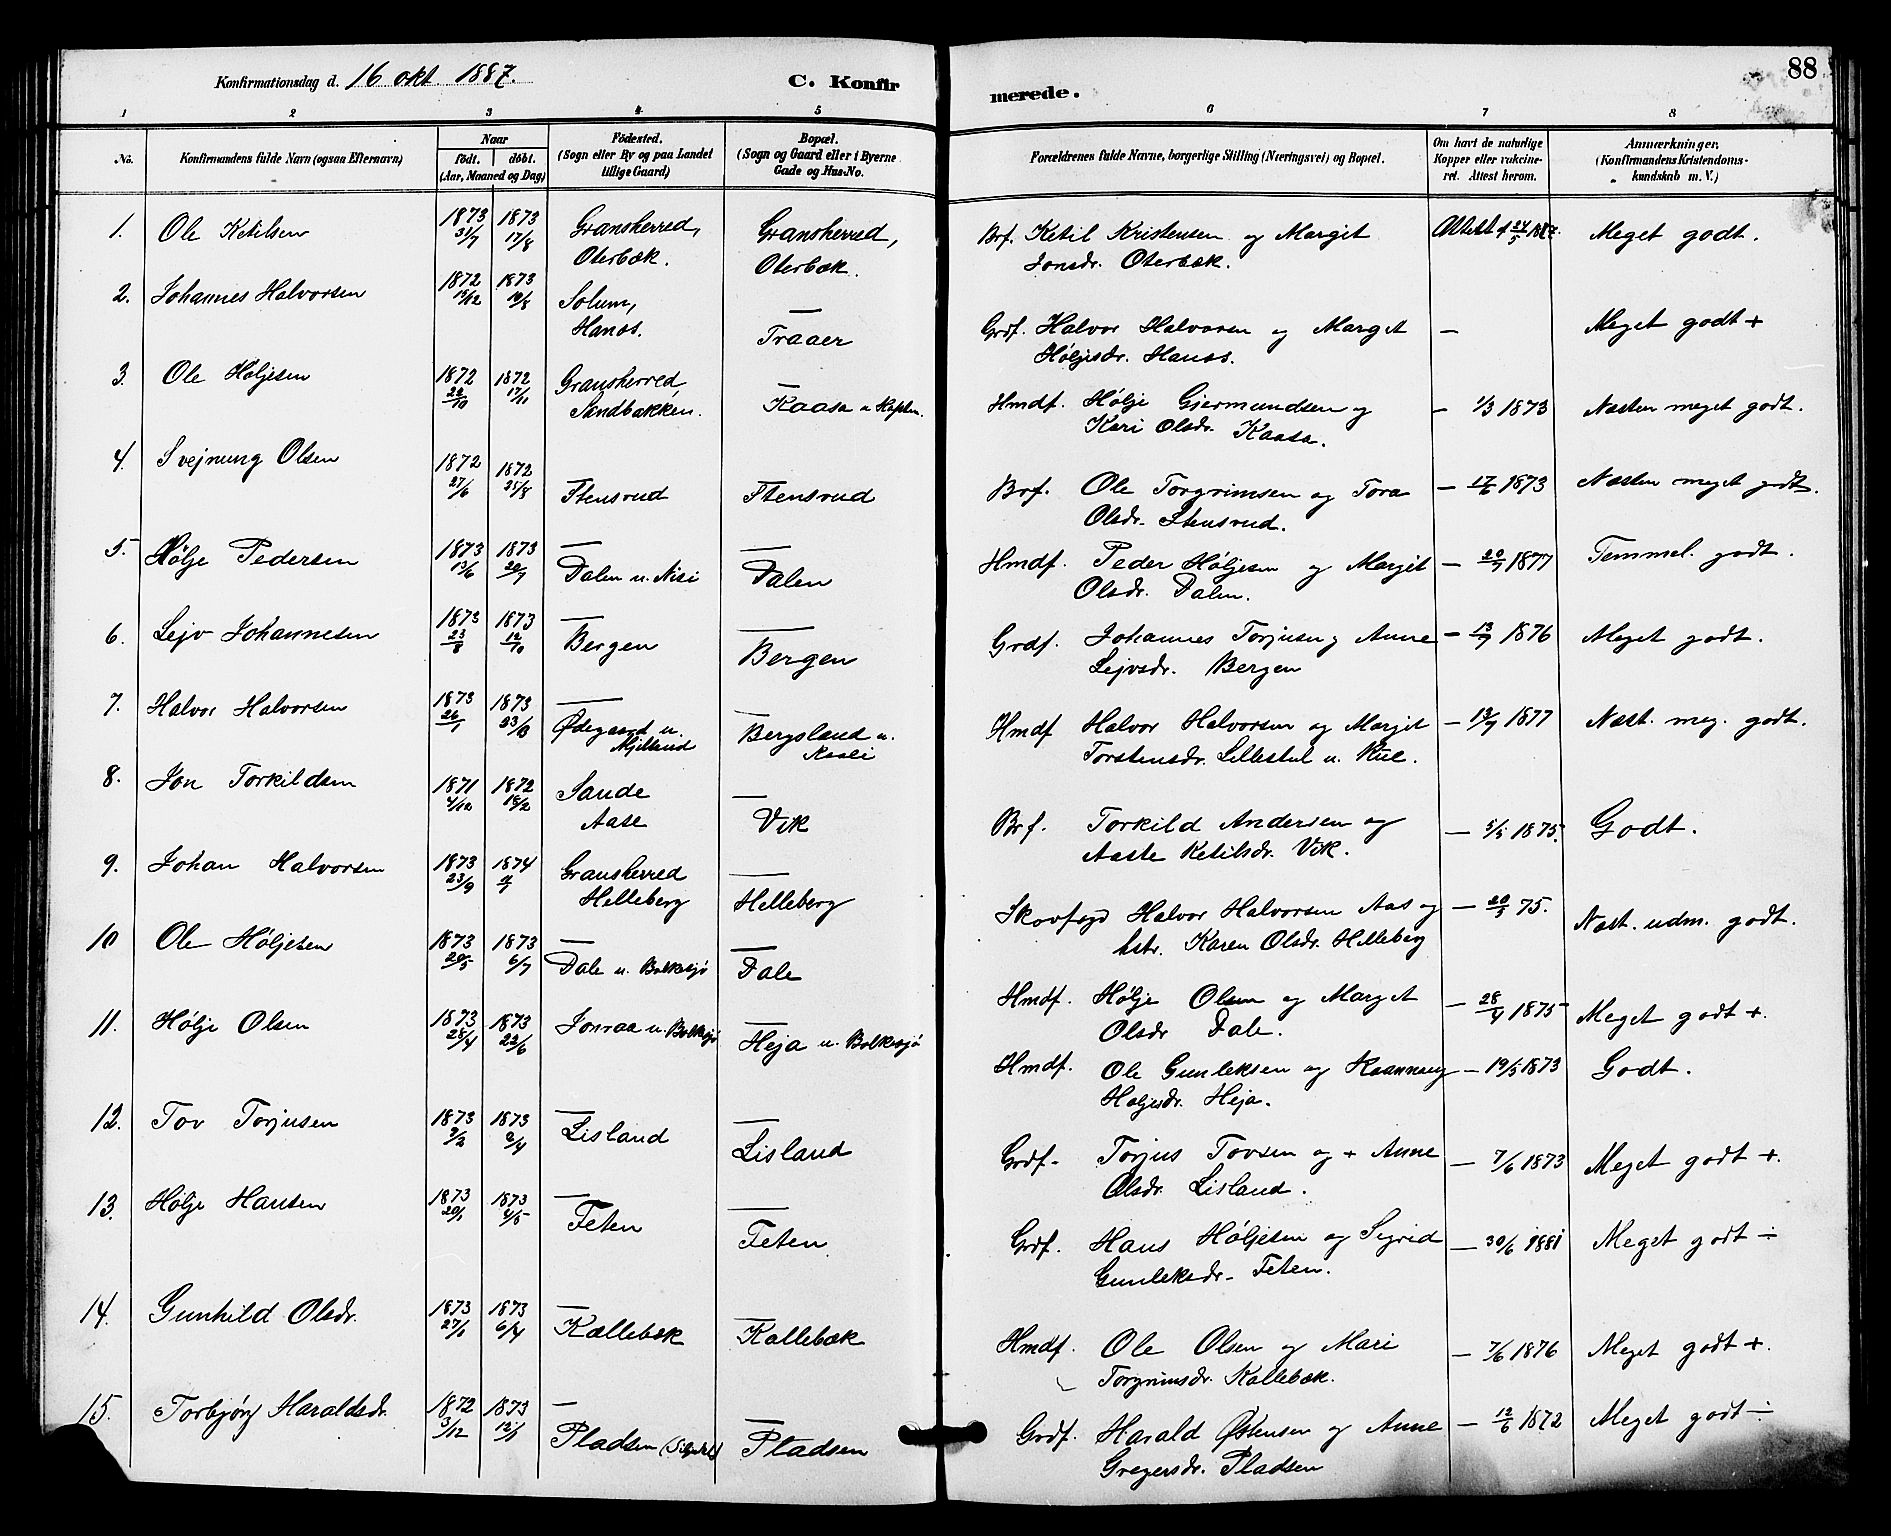 88
Konfirmationsdag d. 16 okt 1887.
C. Konfirmerede.
1 2 3 4 5 6 7 8
No.
Konfirmandens fulde Navn (ogsaa Efternavn)
Naar
født. døbt.
(Aar, Maaned og Dag)
Fødested.
(Sogn eller By og paa Landet
tillige Gaard)
Bopæl.
(Sogn og Gaard eller i Byerne
Gade og Hus-No.
Forældrenes fulde Navne, borgerlige Stilling (Næringsvei) og Bopæl.
Om havt de naturlige
Kopper eller vakcine-
ret. Attest herom.
Anmærkninger.
(Konfirmandens Kristendoms-
kundskab m. V.)
1. Ole Ketilsen 1873 31/7 1873 17/8 Gransherred, Oterbæk. Gransherred, Oterbæk.
Brf. Ketil Kristensen og Margit
Jonsdr. Oterbæk.
Meget godt.
2. Johannes Halvorsen 1872 15/12 1873 Solum, — Traaer
Grdf. Halvor Halvorsen og Marget
Høljesdr. —
Meget godt +
3. Ole Høljesen 1872 1872 17/11 Gransherred, Sandbakken. — Kaasa
Hmdf. Hølje Gjermundsen og
Kari Olsdr. Kaasa.
— 1/3 1873 Næsten meget godt.
4. Svejnung Olsen 1872 27/6 1872 25/8 Stensrud Stensrud
Brf. Ole Torgrimsen og Tora
Olsdr. Stensrud.
— 17/6 1873 Næsten meget godt.
5. Hølje Pedersen 1873 13/6 1873 20/7 — Dalen u. Nisi — Dalen
Hmdf. Peder Høljesen og Margit
Olsdr. Dalen.
— 20/7 1877 Temmel. godt.
6. Lejv Johannesen 1873 23/8 1873 12/10 — Bergen — Bergen
Grdf. Johannes Torjusen og Anne
Lejvsdr. Bergen
— 13/7 1876 Meget godt.
7. Halvor Halvorsen 1873 26/1 1873 23/3 — Ødegaard u. Mjelland — Bergsland u.
Hmdf Halvor Halvorsen og Margit
Torstensdr. Lillestul u.
— 13/7 1877 Næst. meg. godt.
8. Jon Torkildsen 1871 4/12 1872 18/2 Sande Aase — Vik
Brf. Torkild Andersen og
Aaste Ketilsdr. Vik.
— 5/5 1875. Godt.
9. Johan Halvorsen 1873 23/9 1874 Gransherred Helleberg — Helleberg
Skovfogd Halvor Halvorsen Aas og
hstr. Karen Olsdr. Helleberg
— 20/5 75. Næst. udm. godt.
10 Ole Høljesen 1873 20/5 1873 6/7 — Dale u. Bolkesjø — Dale
Hmdf. Hølje Olsen og Marget
Olsdr Dale.
— 28/4 1875 Meget godt +.
11. Hølje Olsen 1873 25/4 1873 22/6 Jonraa u. Bolkesjø — Heja u. Bolkesjø
Hmdf. Ole Gunleksen og Raannaug
Høljesdr. Heja.
— 19/5 1873 Godt.
12. Tov Torjusen 1873 1873 2/4 — Lisland — Lisland
Grdf. Torjus Tovsen og + Anne
Olsdr. Lisland.
— 7/6 1873 Meget godt +.
13. Hølje Hansen 1873 20/1 1873 4/5 — Feten — Feten
Grdf. Hans Høljesen og Sigrid
Gunleksdr. Feten.
— 30/6 1881 Meget godt ÷
14. Gunhild Olsdr. 1873 27/1 1873 6/4 — Kallebæk — Kallebæk
Hmdf. Ole Olsen og Mari
Torgrimsdr. Kallebæk.
— 7/6 1876 Meget godt +.
15. Torbjørg Haraldsdr. 1872 3/12 1873 12/1 — Pladsen — Pladsen
Grdf. Harald Østensen og Anne
Gregersdr. Pladsen
— 12/6 1872 Meget godt ÷